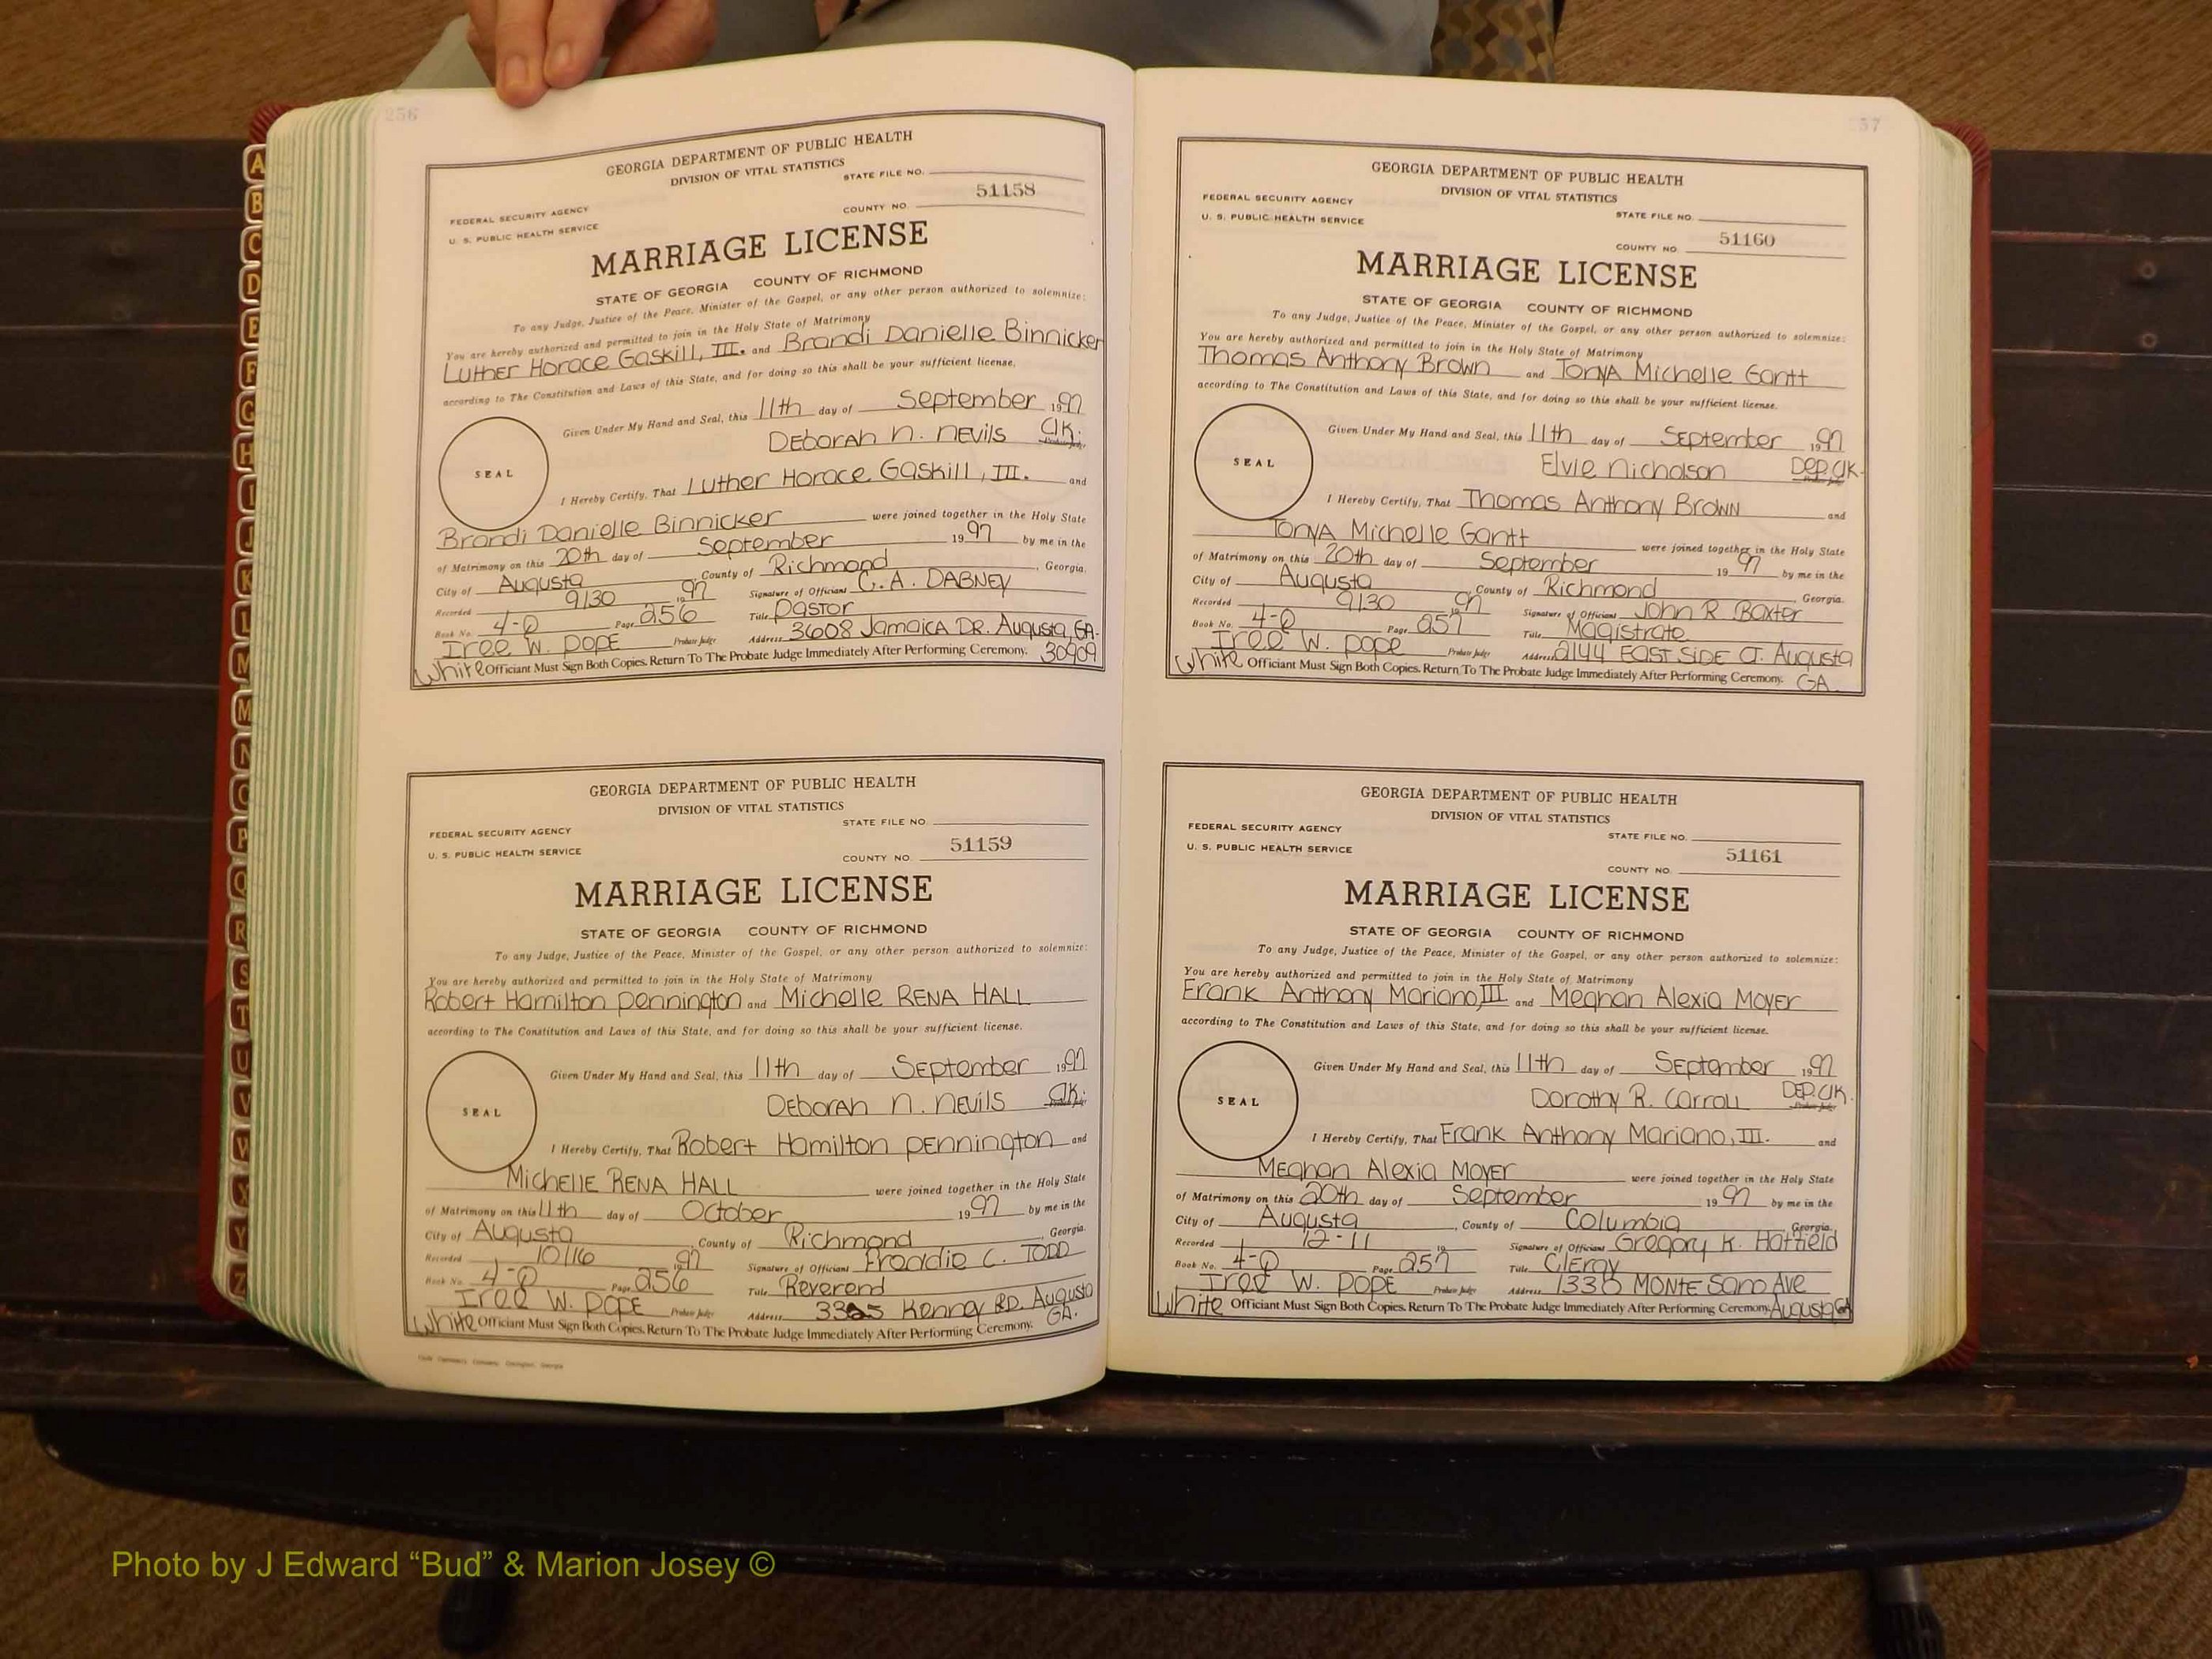 256
GEORGIA DEPARTMENT OF PUBLIC HEALTH
DIVISION OF VITAL STATISTICS
STATE FILE NO.
FEDERAL SECURITY AGENCY
51158
U. S. PUBLIC HEALTH SERVICE
COUNTY NO.
MARRIAGE LICENSE
STATE OF GEORGIA COUNTY OF RICHMOND
To any Judge, Justice of the Peace, Minister of the Gospel, or any other person authorized to solemnize:
You are hereby authorized and permitted to join in the Holy State of Matrimony
Luther Horace Gaskill, III. and Brandi Danielle Binnicker
according to The Constitution and Laws of this State, and for doing so this shall be your sufficient license.
Given Under My Hand and Seal, this 11th day of September 1997
Deborah N. Nevils Clk.
SEAL
I Hereby Certify, That Luther Horace Gaskill, III. and
Brandi Danielle Binnicker were joined together in the Holy State
of Matrimony on this 20th day of September 1997 by me in the
City of Augusta County of Richmond, Georgia.
Recorded 9/30 1997 Signature of Officiant C. A. DABNEY
Book No. 4-Q Page 256 Title Pastor
Iree W. Pope Probate Judge Address 3608 Jamaica DR. Augusta, GA.
White Officiant Must Sign Both Copies. Return To The Probate Judge Immediately After Performing Ceremony. 30909
GEORGIA DEPARTMENT OF PUBLIC HEALTH
DIVISION OF VITAL STATISTICS
STATE FILE NO.
FEDERAL SECURITY AGENCY
51159
U. S. PUBLIC HEALTH SERVICE
COUNTY NO.
MARRIAGE LICENSE
STATE OF GEORGIA COUNTY OF RICHMOND
To any Judge, Justice of the Peace, Minister of the Gospel, or any other person authorized to solemnize:
You are hereby authorized and permitted to join in the Holy State of Matrimony
Robert Hamilton Pennington and Michelle RENA HALL
according to The Constitution and Laws of this State, and for doing so this shall be your sufficient license.
Given Under My Hand and Seal, this 11th day of September 1997
Deborah N. Nevils Clk.
SEAL
I Hereby Certify, That Robert Hamilton Pennington and
Michelle RENA HALL were joined together in the Holy State
of Matrimony on this 11th day of October 1997 by me in the
City of Augusta, County of Richmond, Georgia.
Recorded 10/16 1997 Signature of Officiant Freddie C. TODD
Book No. 4-Q Page 256 Title Reverend
Iree W. Pope Probate Judge Address Kenney RD. Augusta
White Officiant Must Sign Both Copies. Return To The Probate Judge Immediately After Performing Ceremony. GA.
57
GEORGIA DEPARTMENT OF PUBLIC HEALTH
DIVISION OF VITAL STATISTICS
FEDERAL SECURITY AGENCY
STATE FILE NO.
U. S. PUBLIC HEALTH SERVICE
51160
COUNTY NO.
MARRIAGE LICENSE
STATE OF GEORGIA COUNTY OF RICHMOND
To any Judge, Justice of the Peace, Minister of the Gospel, or any other person authorized to solemnize:
You are hereby authorized and permitted to join in the Holy State of Matrimony
Thomas Anthony Brown and Tonya Michelle Gantt
according to The Constitution and Laws of this State, and for doing so this shall be your sufficient license.
Given Under My Hand and Seal, this 11th day of September 1997
Elvie Nicholson Dep. Clk.
SEAL
I Hereby Certify, That Thomas Anthony Brown and
Tonya Michelle Gantt were joined together in the Holy State
of Matrimony on this 20th day of September 1997 by me in the
City of Augusta, County of Richmond, Georgia.
Recorded 9/30 1997 Signature of Officiant John R. Baxter
Book No. 4-Q Page 257 Title Magistrate
Iree W. Pope Probate Judge Address 2144 EAST SIDE CT. Augusta
White Officiant Must Sign Both Copies. Return To The Probate Judge Immediately After Performing Ceremony. GA.
GEORGIA DEPARTMENT OF PUBLIC HEALTH
DIVISION OF VITAL STATISTICS
FEDERAL SECURITY AGENCY
STATE FILE NO.
U. S. PUBLIC HEALTH SERVICE
51161
COUNTY NO.
MARRIAGE LICENSE
STATE OF GEORGIA COUNTY OF RICHMOND
To any Judge, Justice of the Peace, Minister of the Gospel, or any other person authorized to solemnize:
You are hereby authorized and permitted to join in the Holy State of Matrimony
Frank Anthony Mariano, III and Meghan Alexia Moyer
according to The Constitution and Laws of this State, and for doing so this shall be your sufficient license.
Given Under My Hand and Seal, this 11th day of September 1997
Dorothy R. Carroll DEP. Clk.
SEAL
I Hereby Certify, That Frank Anthony Mariano, III. and
Meghan Alexia Moyer were joined together in the Holy State
of Matrimony on this 20th day of September 1997 by me in the
City of Augusta, County of Columbia, Georgia.
Recorded 12-11 19 Signature of Officiant Gregory K. Hatfield
Book No. 4-Q Page 257 Title Clergy
Iree W. Pope Probate Judge Address 1330 Monte Sano Ave
White Officiant Must Sign Both Copies. Return To The Probate Judge Immediately After Performing Ceremony. Augusta GA
A
B
C
D
E
F
G
H
I
J
K
L
M
M
N
O
P
Q
R
S
T
U
V
W
X
Y
Z
Photo by J Edward “Bud” & Marion Josey ©